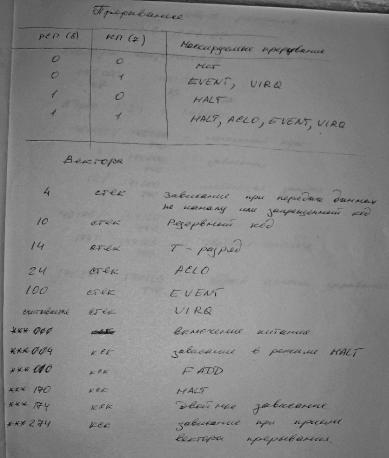 Прерывание
РСП (8) РСП (7) Маскируемые прерывания
0 0 нет
0 1 EVENT, VIRQ
1 0 HALT
1 1 HALT, ACLO, EVENT, VIRQ
Вектора
4 стек зависание при передаче данных
по каналу или запрещенный код
10 стек Резервный код
14 стек Т-разряд
24 стек ACLO
100 стек EVENT
считывается стек VIRQ
включение питания
***004 кск зависание в режиме HALT
***010 кск FADD
***170 кск HALT
***174 кск Двойное зависание
***274 кск зависание при приеме
вектора прерывания